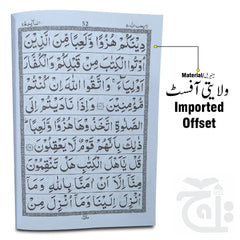 52
دِيْنَكُمْ هُزُوًا وَّلَعِبًا مِّنَ الَّذِيْنَ
اُوْتُوا الْكِتٰبَ مِنْ قَبْلِكُمْ وَالْكُفَّارَ
اَوْلِيَآءَ ۚ وَاتَّقُوا اللّٰهَ اِنْ كُنْتُمْ
مُّؤْمِنِيْنَ ۝ وَاِذَا نَادَيْتُمْ اِلَى
الصَّلٰوةِ اتَّخَذُوْهَا هُزُوًا وَّلَعِبًا ؕ
ذٰلِكَ بِاَنَّهُمْ قَوْمٌ لَّا يَعْقِلُوْنَ ۝
قُلْ يٰۤاَهْلَ الْكِتٰبِ هَلْ تَنْقِمُوْنَ
مِنَّاۤ اِلَّاۤ اَنْ اٰمَنَّا بِاللّٰهِ وَمَاۤ
اُنْزِلَ اِلَيْنَا وَمَاۤ اُنْزِلَ مِنْ
Material/میٹیریل
ولایتی آفسٹ
Imported
Offset